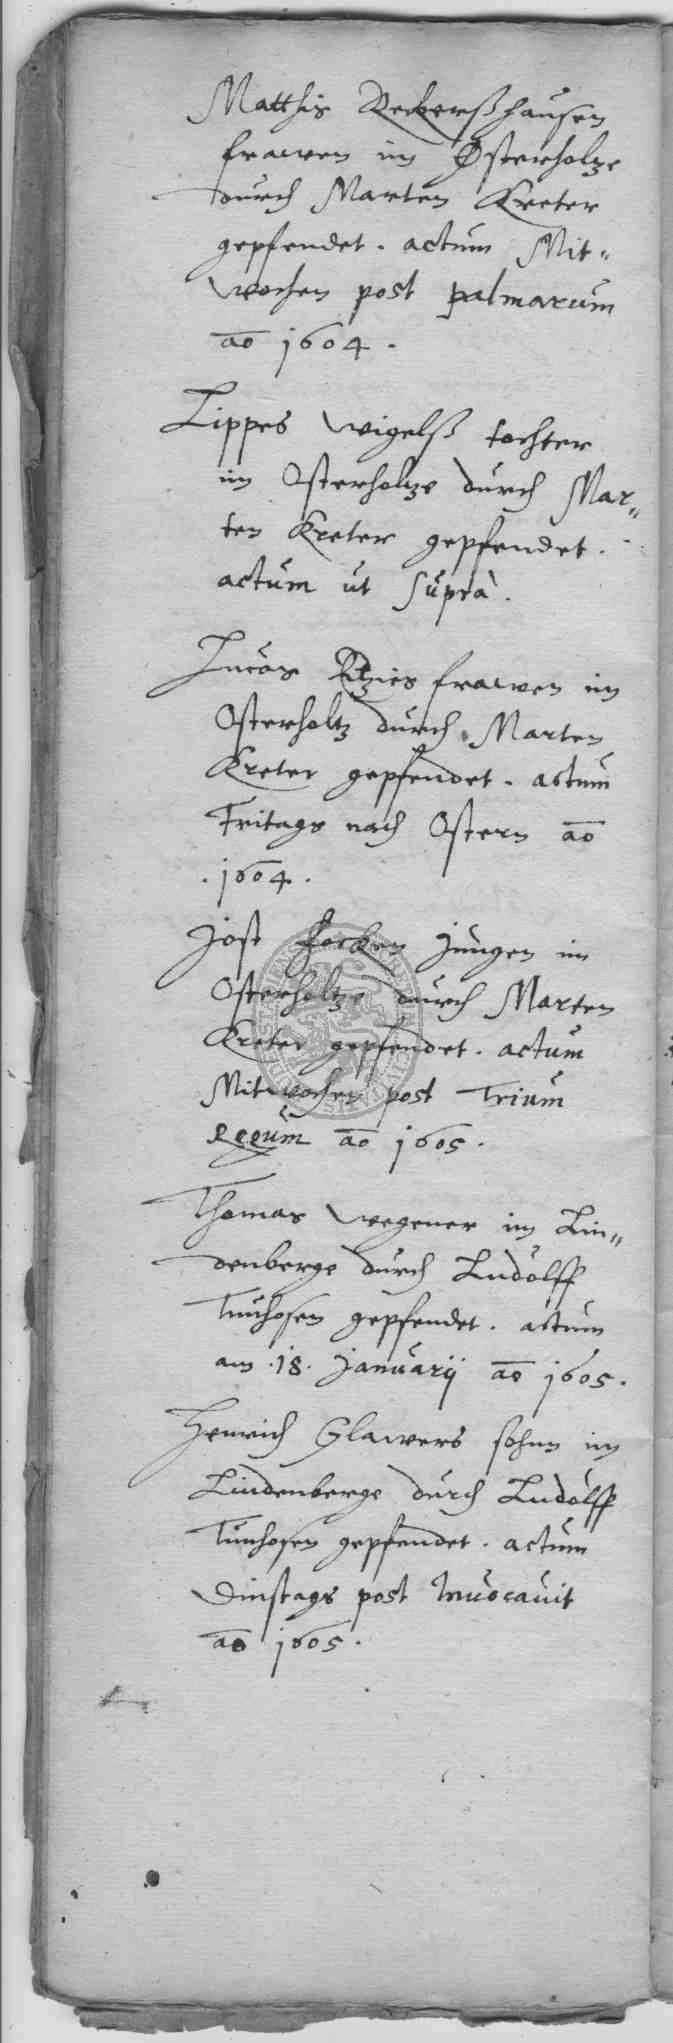 Matthis Reckerßhausen
frawen im Osterholtze
durch Marten Kreter
gepfendet. actum Mit-
wochen post palmarum
ao 1604.
Lippes Wigelß tochter
im Osterholtze durch Mar-
ten Kreter gepfendet.
actum ut supra.
Lucas Itzies frawen im
Osterholtz durch Marten
Kreter gepfendet. actum
Fritags nach Ostern ao
.1604.
Jost Focken Jungen im
Osterholtze durch Marten
Kreter gepfendet. actum
Mitwochen post Trium
regum ao 1605.
Thomas Wegener im Lin-
denberge durch Ludolff
Tunhosen gepfendet. actum
am .18. Januarij ao 1605.
Henrich Glawers sohnn im
Lindenberge durch Ludolff
Tunhosen gepfendet. actum
Dinstags post Invocavit
ao 1605.